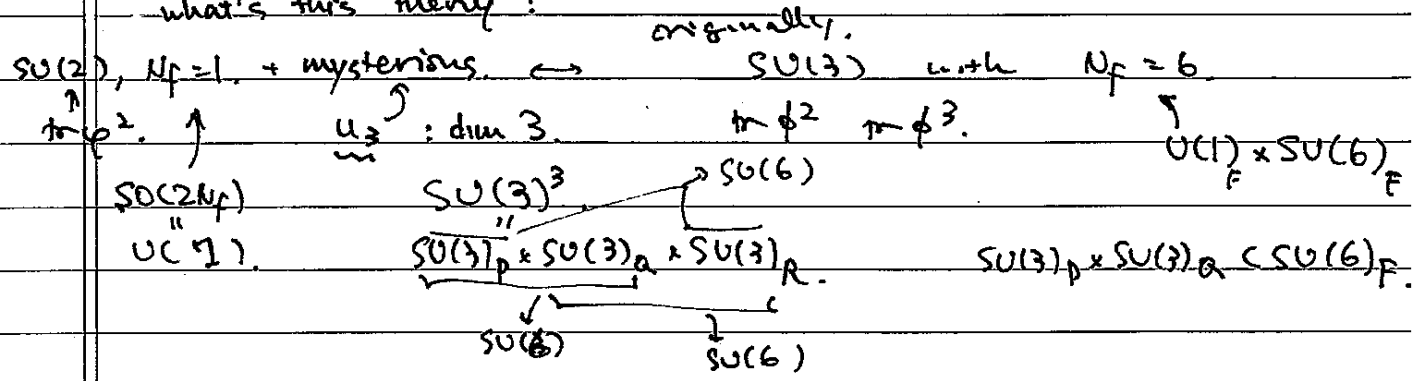 what's this theory?
originally.
SU(2), Nf=1. + mysterious. ↔ SU(3) with Nf = 6
tr φ². u₃ : dim 3. tr φ² tr φ³. U(1)_F × SU(6)_F
SO(2Nf) SU(3)³ SU(6)
" "
U(1). SU(3)_P × SU(3)_Q × SU(3)_R. SU(3)_P × SU(3)_Q ⊂ SU(6)_F.
SU(6) SU(6)